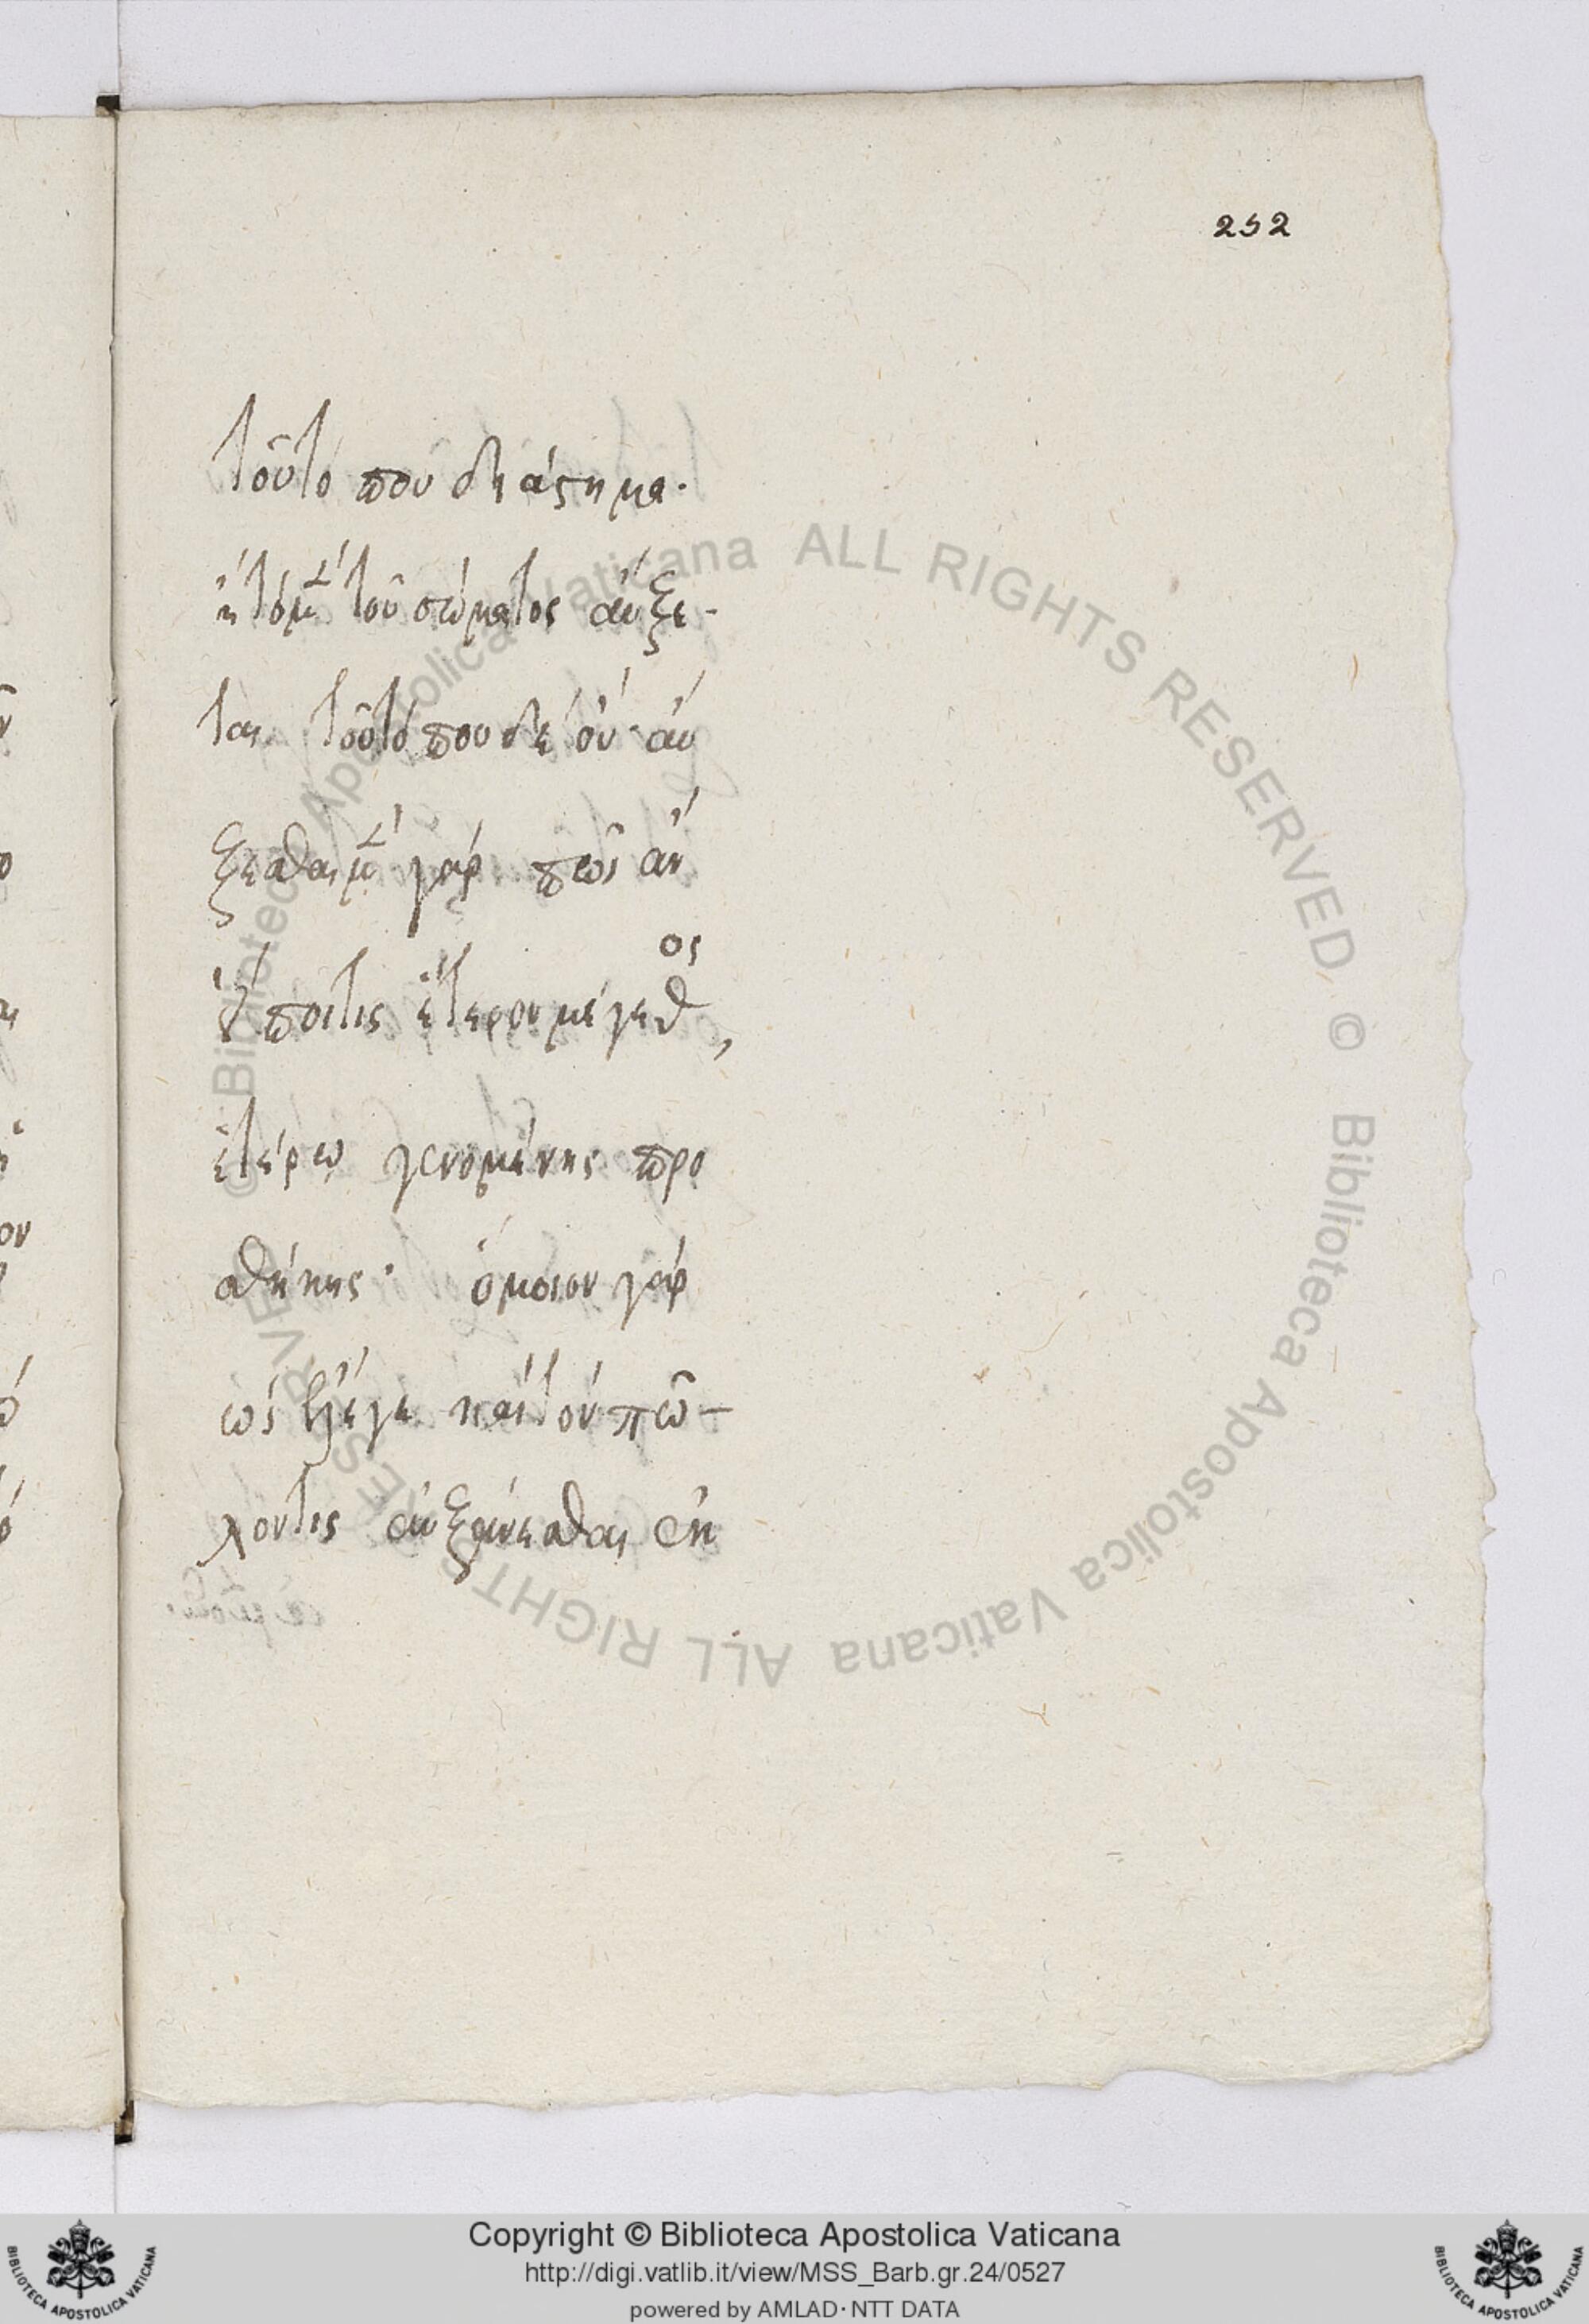 252
τοῦτο που διάστημα·
ἢ τὸ μὲν τοῦ σώματος αὔξε-
ται τοῦτό που δὲ οὔ· αὔ
ξεσθαι μὲν γὰρ πῶς ἂν
εἴποι τις ἕτερον μέγεθος,
ἑτέρω γενομένης προ
σθήκης· ὅμοιον γὰρ
ὡς εἰ ἔλεγε καὶ τὸν πῶ-
λον τις αὐξάνεσθαι ἐκ
© Biblioteca Apostolica Vaticana ALL RIGHTS RESERVED © Biblioteca Apostolica Vaticana ALL RIGHTS RESERVED
Copyright © Biblioteca Apostolica Vaticana
http://digi.vatlib.it/view/MSS_Barb.gr.24/0527
powered by AMLAD·NTT DATA
BIBLIOTECA APOSTOLICA VATICANA
BIBLIOTECA APOSTOLICA VATICANA